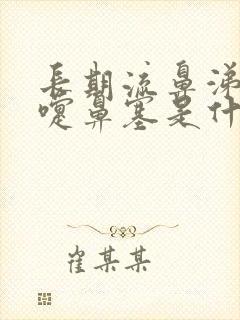 長期流鼻涕
嚏鼻塞是什
崔某某